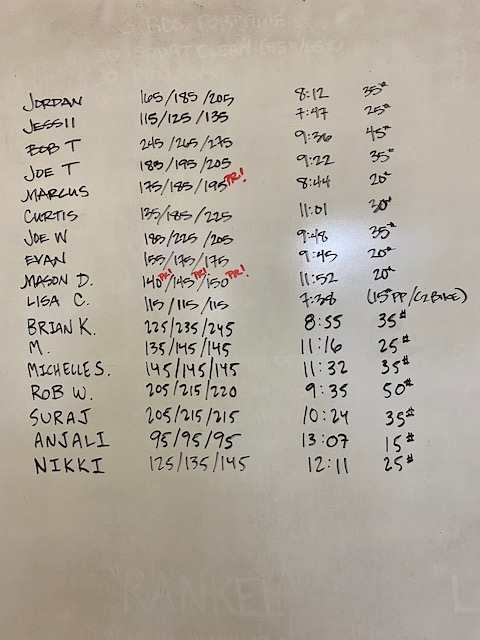 JORDAN 165/185/205 8:12 35#
JESSII 115/125/135 7:47 25#
BOB T 245/265/275 9:36 45#
JOE T 185/195/205 9:22 35#
MARCUS 175/185/195 PR! 8:44 20#
CURTIS 135/185/225 11:01 30#
JOE W 185/225/205 9:48 35#
EVAN 155/175/175 9:45 20#
MASON D. 140 PR!/145 PR!/150 PR! 11:52 20#
LISA C. 115/115/115 7:38 (15#PP/C2BIKE)
BRIAN K. 225/235/245 8:55 35#
M. 135/145/145 11:16 25#
MICHELLE S. 145/145/145 11:32 35#
ROB W. 205/215/220 9:35 50#
SURAJ 205/215/215 10:24 35#
ANJALI 95/95/95 13:07 15#
NIKKI 125/135/145 12:11 25#
"RANKEL"